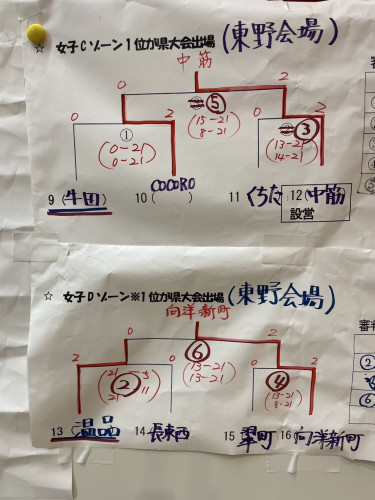 ☆ 女子Cゾーン1位が県大会出場 (東野会場)
中筋
0 2
⑤
(15-21
8-21)
0 2 0 2
①
(0-21
0-21)
③
(13-21
14-21)
9 (牛田) 10 (COCORO) 11 くちた 12 (中筋)
設営
審
☆ 女子Dゾーン※1位が県大会出場 (東野会場)
向洋新町
0 2
⑥
(13-21
13-21)
2 0 0 2
②
④
(13-21
8-21)
審判
②
13 (温品) 14 長束西 15 翠町 16 向洋新町